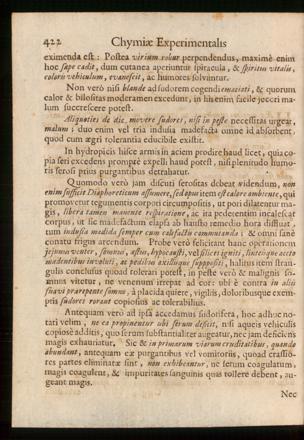 422 Chymiæ Experimentalis
eximenda est: Postea virium robur perpendendus, maximè enim
hoc sæpe cadit, dum cutanea aperiuntur spiracula, & spiritus vitalis,
caloris vehiculum, evanescit, ac humores solvuntur.
Non verò nisi blande ad sudorem cogendi emaciati, & quorum
calor & bilositas moderamen excedunt, in his enim facile jecori ma-
lum succrescere potest.
Aliquoties de die, movere sudores, nisi in peste necessitas urgeat,
malum; duo enim vel tria indusia madefacta omne id absorbent,
quod cum ægri tolerantia educibile existit.
In hydropicis hisce armis in aciem prodire haud licet, quia co-
pia seri excedens prompte expelli haud potest, nisi plenitudo humo-
ris serosi prius purgantibus detrahatur.
Quomodo verò jam discuti serositas debeat videndum, non
enim sufficit Diaphoreticum assumere, sed datur item est calore ambiente, qui
promovetur tegumentis corpori circumpositis, ut pori dilatentur ma-
gis, libera tamen manente respiratione, ac ita pedetentim incalescat
corpus, ut sic madefactum elapsa ab hausto remedio hora diffluat,
tum indusia madida semper cum calefactis commutanda: & omni sane
conatu frigus arcendum. Probe verò felicitant hanc operationem
jejunus venter, somnus, æstus, hypocausti, vel silices igniti, linteoque aceto
madentibus involuti, ac pedibus axillisque suppositi, halitus item stran-
gulis conclusus quoad tolerari potest, in peste verò & malignis so-
mnus vitetur, ne venenum irrepat ad cor: ubi è contra in aliis
suavi prærepante somno, à placida quiete, vigiliis, doloribusque exem-
ptis sudores rorant copiosius ac tolerabilius.
Antequam verò ad ipsa accedamus sudorifera, hoc adhuc no-
tari velim, ne ea propinentur ubi serum deficit, nisi aqueis vehiculis
copiosè additis, quo serum substantialiter augeatur, nec jam deficiens
magis exhauriatur, Sic & in primarum viarum cruditatibus, quando
abundant, antequam ex purgantibus vel vomitoriis, quoad crassio-
res partes eliminatæ sint, non exhibeantur, ne serum coagulatum,
magis coagulent, & impuritates sanguinis quas tollere debent, au-
geant magis.
Nec